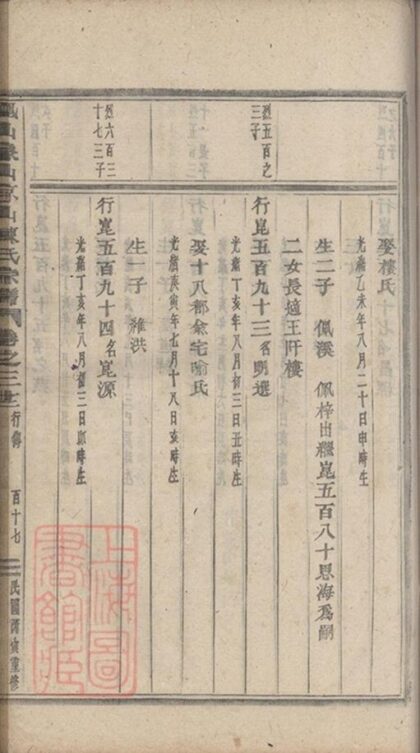 娶樓氏
光緒乙未年八月二十日申時生
生二子 佩溪 佩梓出繼崑五百八十思海為嗣
二女長適王阡樓
烈五百之
三子
行崑五百九十三名明選
光緒丁亥年八月初三日丑時生
娶十八都余宅喻氏
光緒庚寅年七月十八日亥時生
生一子 維洪
烈六百三
十七三子
行崑五百九十四名崑源
光緒丁亥年八月初三日卯時生
山陳氏宗譜
卷之三
行傳
百十七
民國丙寅重修
上海圖
書館藏